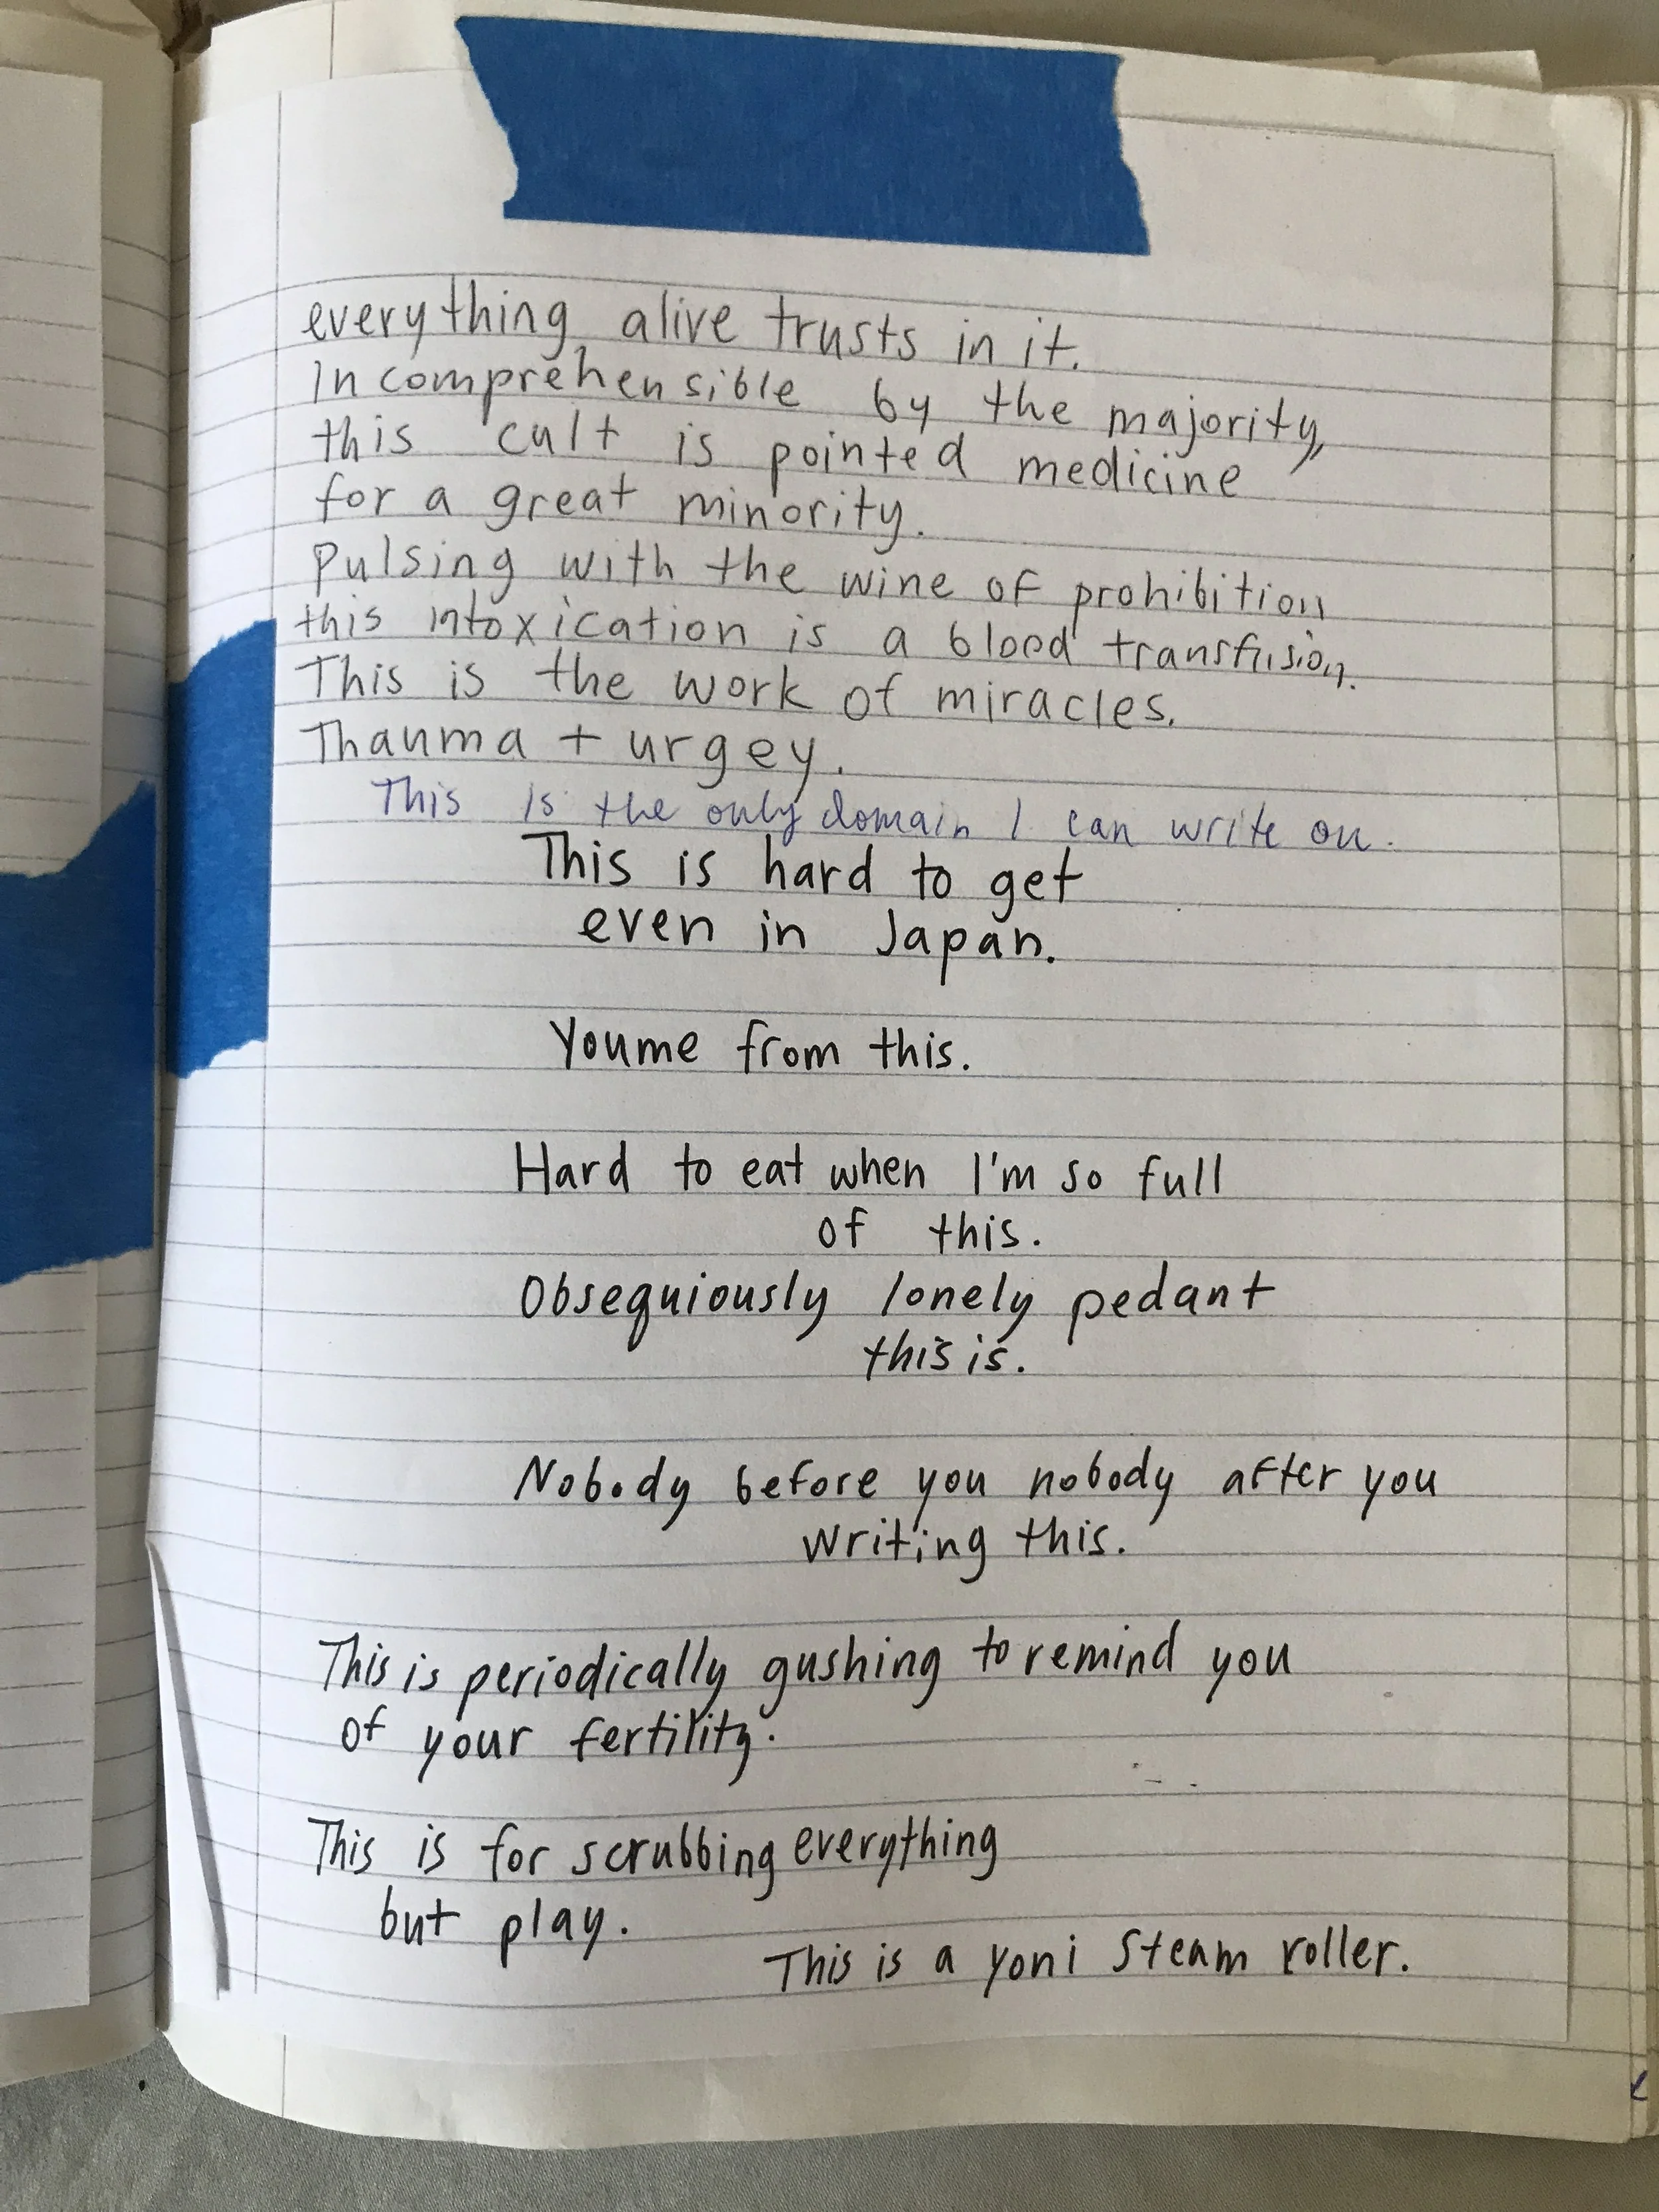 everything alive trusts in it.
Incomprehensible by the majority,
this cult is pointed medicine
for a great minority.
Pulsing with the wine of prohibition
this intoxication is a blood transfusion.
This is the work of miracles.
Thauma + urgey.
This is the only domain I can write on.
This is hard to get
even in Japan.
Youme from this.
Hard to eat when I'm so full
of this.
Obsequiously lonely pedant
this is.
Nobody before you nobody after you
writing this.
This is periodically gushing to remind you
of your fertility.
This is for scrubbing everything
but play.
This is a yoni steam roller.